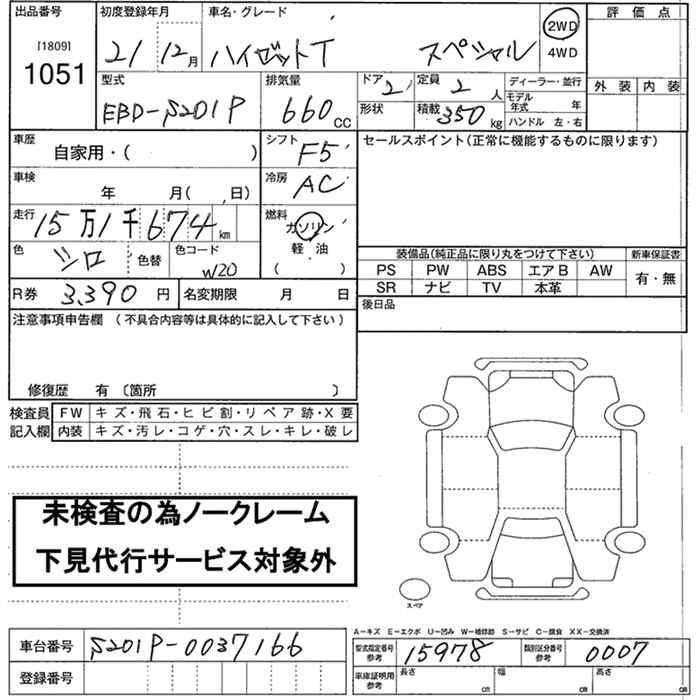 出品番号 初度登録年月 車名・グレード 評価点
[1809]
1051
21 12月 ハイゼットT スペシャル 2WD
4WD
型式 排気量 ドア 定員 ディーラー・並行 外装 内装
EBD-S201P 660cc 2 2人 モデル年式 年
形状 積載 350kg ハンドル 左・右
車歴 自家用・( ) シフト F5 セールスポイント(正常に機能するものに限ります)
車検 年 月( 、日) 冷房 AC
走行 15万1千674km 燃料 ガソリン
軽・油
( )
色 シロ 色替 色コード W20
装備品(純正品に限り丸をつけて下さい) 新車保証書
PS PW ABS エアB AW 有・無
SR ナビ TV 本革
R券 3,390円 名変期限 月 日
後日品
注意事項申告欄 (不具合内容等は具体的に記入して下さい)
修復歴 有 〔箇所 〕
検査員 FW キズ・飛石・ヒビ割・リペア跡・X要
記入欄 内装 キズ・汚レ・コゲ・穴・スレ・キレ・破レ
未検査の為ノークレーム
下見代行サービス対象外
スペア
A−キズ E−エクボ U−凹み W−補修跡 S−サビ C−腐食 XX−交換済
車台番号 S201P-0037166 型式指定番号 参考 15978 類別区分番号 参考 0007
登録番号 車庫証明用 参考 長さ cm 幅 cm 高さ cm